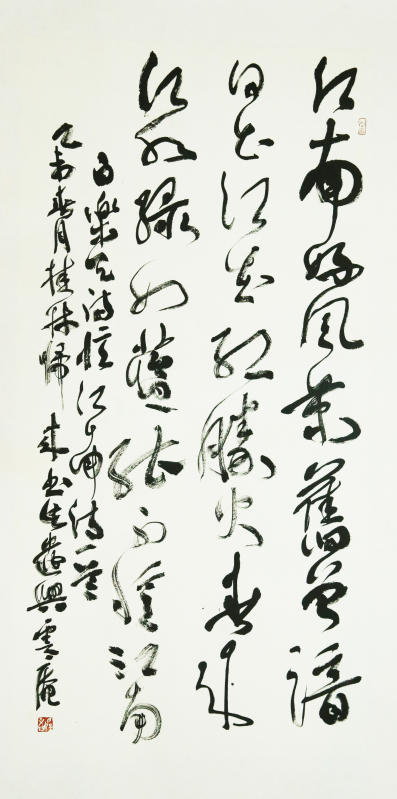 江南好風景舊曾諳
日出江花紅勝火春來
江水綠如藍能不憶江南
白樂天詩憶江南詩一首
乙未春月桂林歸來書興雲庵